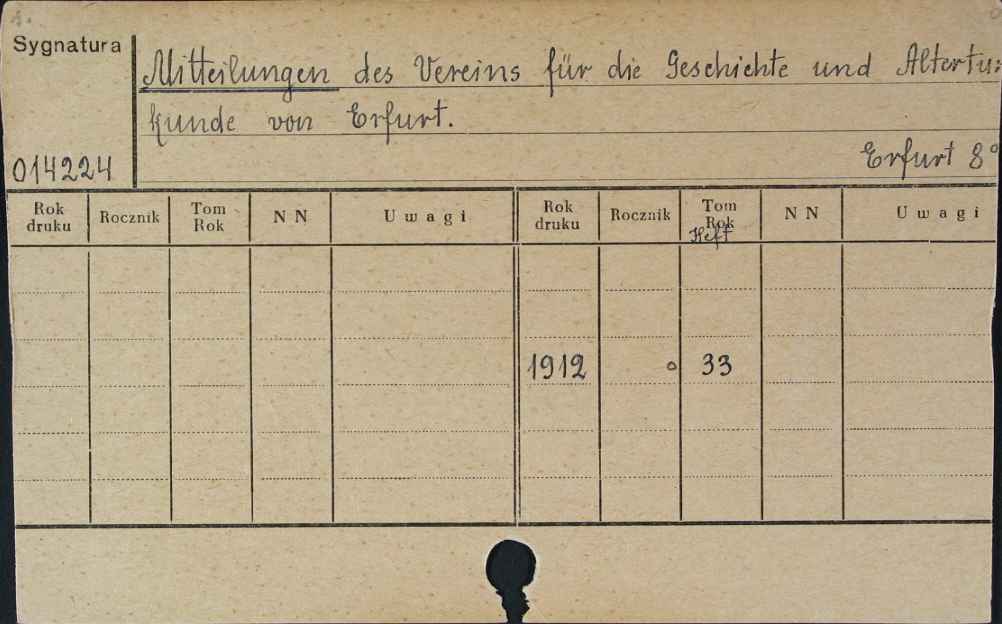 Sygnatura
Mitteilungen des Vereins für die Geschichte und Altertu:
kunde von Erfurt.
014224
Erfurt 8°
Rok druku Rocznik Tom Rok N N Uwagi Rok druku Rocznik Tom Rok N N Uwagi
Heft
1912 ° 33